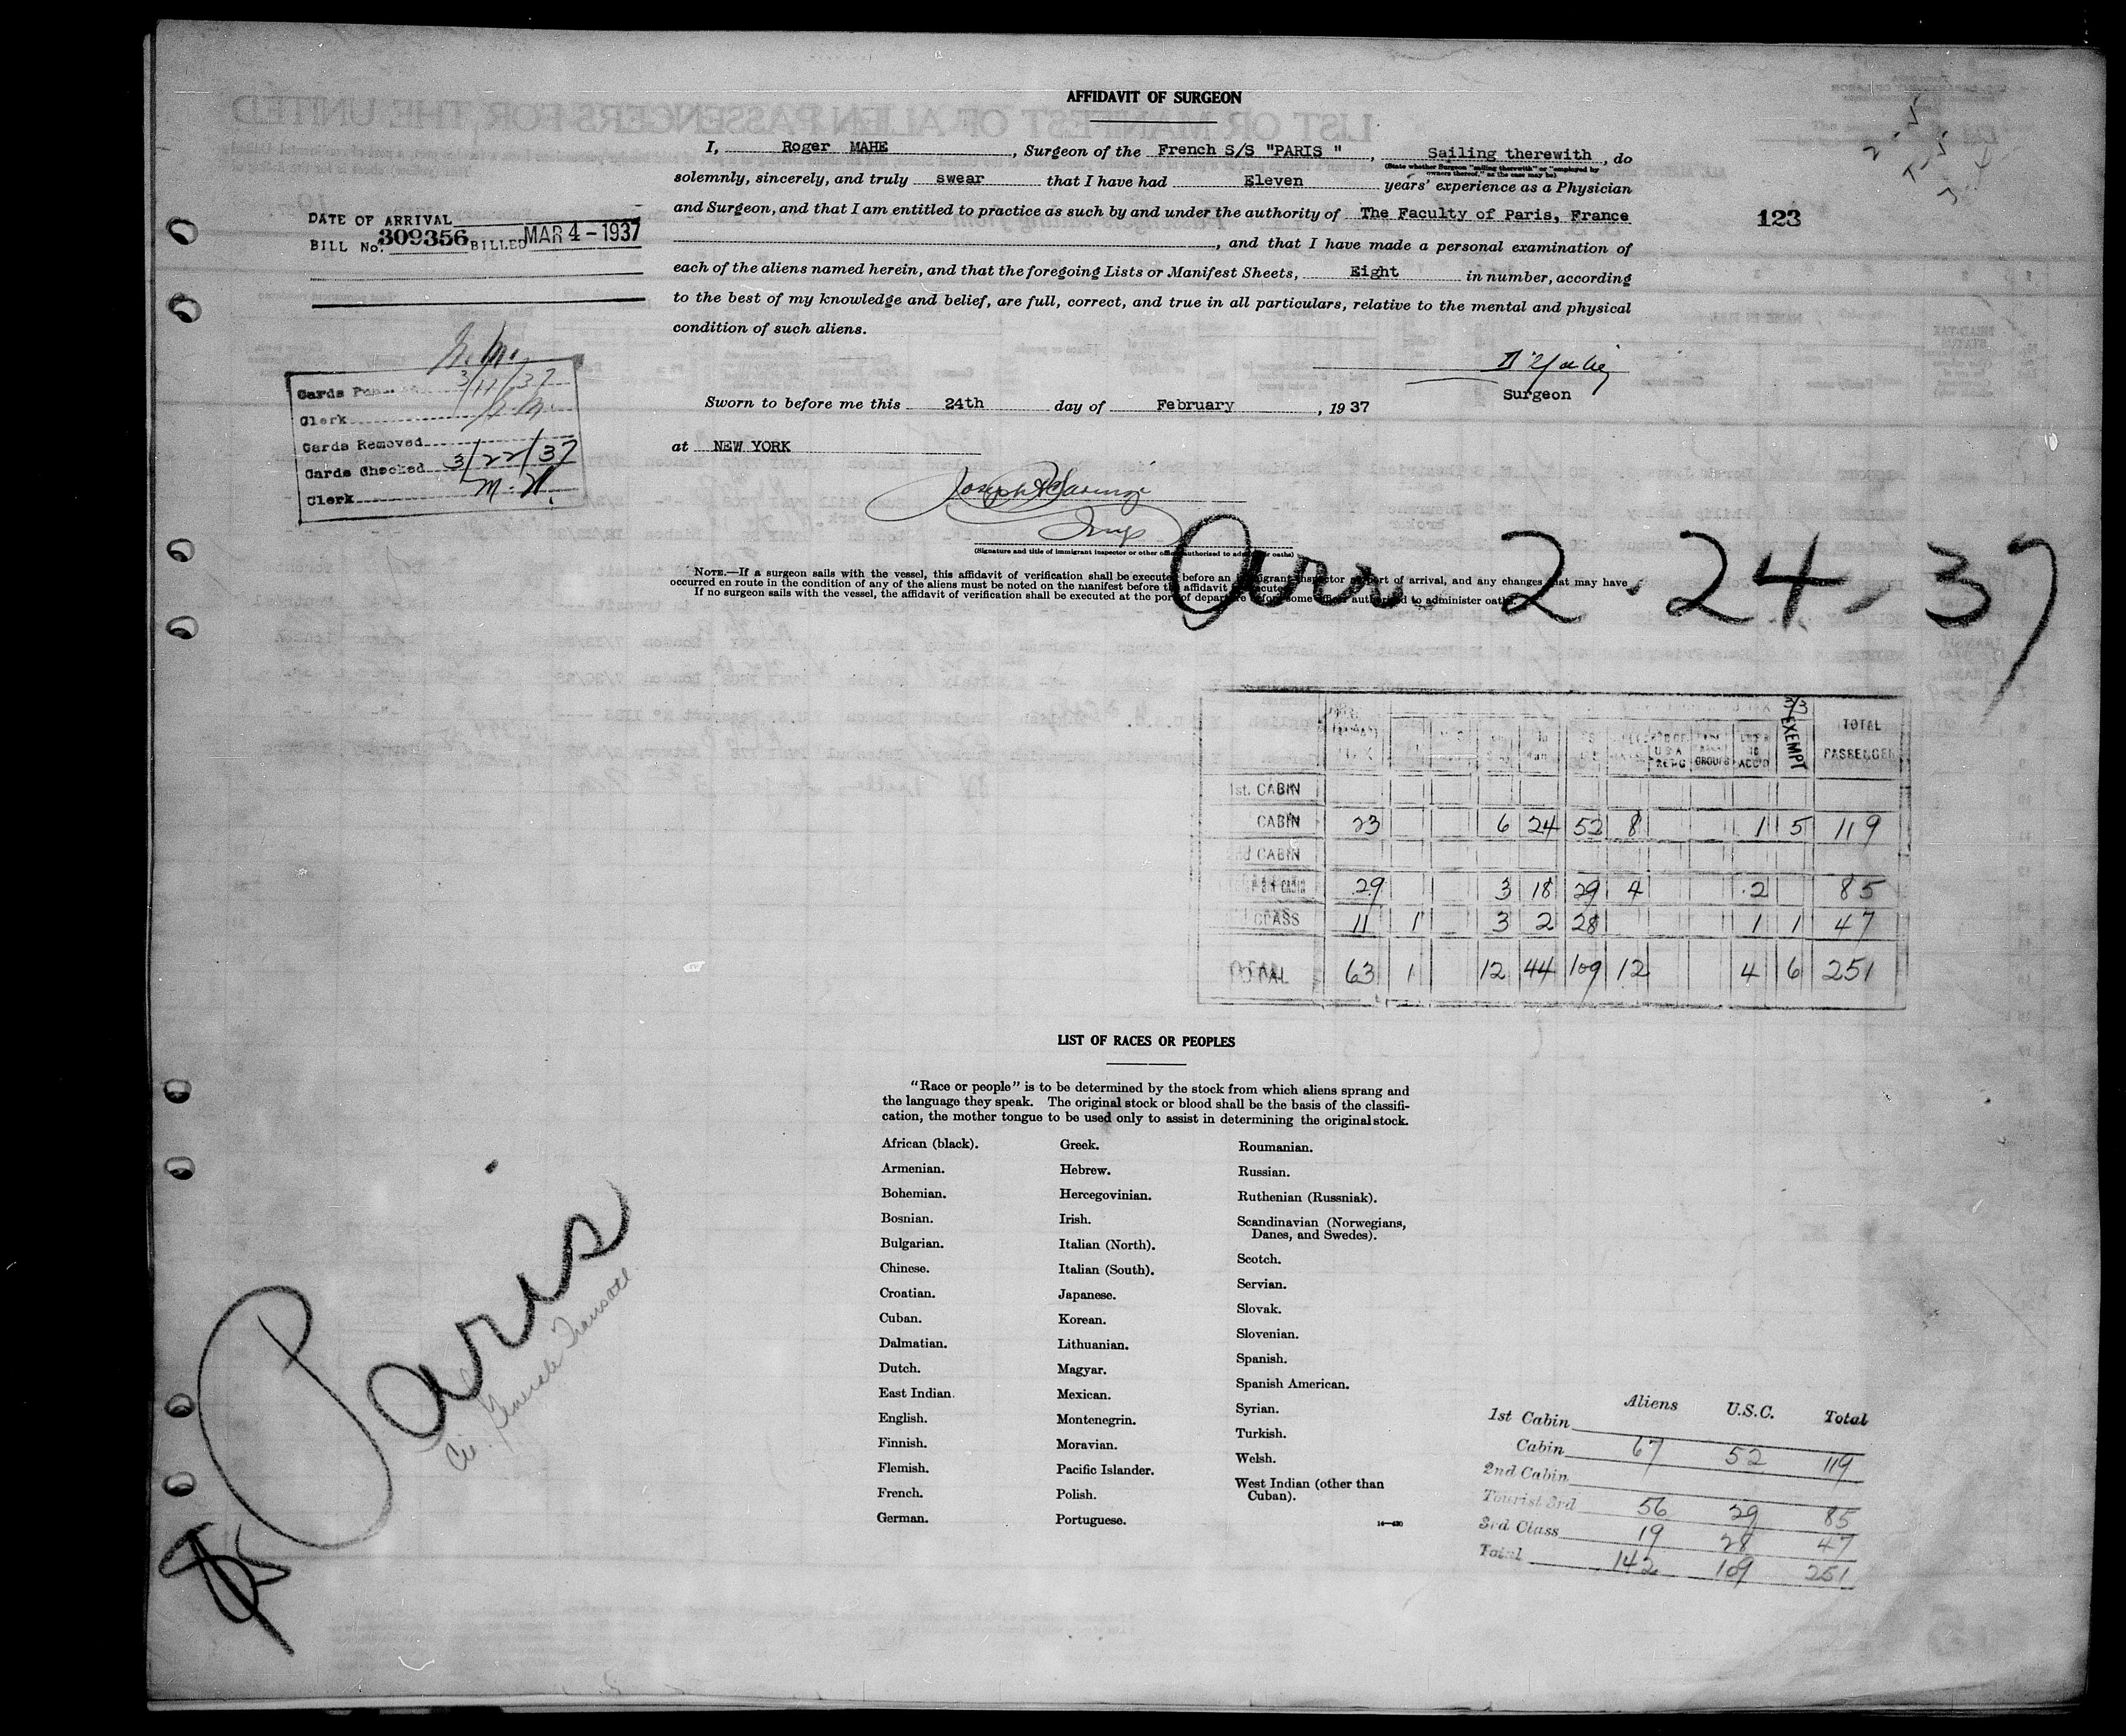 AFFIDAVIT OF SURGEON
I, Roger MAHE, Surgeon of the French S/S "PARIS ", Sailing therewith, do
(State whether Surgeon "sailing therewith" or "employed by
owners thereof," as the case may be)
solemnly, sincerely, and truly swear that I have had Eleven years' experience as a Physician
and Surgeon, and that I am entitled to practice as such by and under the authority of The Faculty of Paris, France
, and that I have made a personal examination of
each of the aliens named herein, and that the foregoing Lists or Manifest Sheets, Eight in number, according
to the best of my knowledge and belief, are full, correct, and true in all particulars, relative to the mental and physical
condition of such aliens.
Surgeon
Sworn to before me this 24th day of February, 1937
at NEW YORK
Insp
(Signature and title of immigrant inspector or other officer authorized to administer oaths)
NOTE.—If a surgeon sails with the vessel, this affidavit of verification shall be executed before an immigrant inspector at port of arrival, and any changes that may have
occurred en route in the condition of any of the aliens must be noted on the manifest before the affidavit is executed.
If no surgeon sails with the vessel, the affidavit of verification shall be executed at the port of departure before some officer authorized to administer oaths.
DATE OF ARRIVAL
BILL No. 309356 BILLED MAR 4-1937
123
3/11/37
Clerk
Cards Removed
Cards Checked 3/22/37
Clerk M. H.
Arr 2-24-37
EXEMPT TOTAL PASSENGER
1st. CABIN
CABIN 23 6 24 52 8 1 5 119
2nd CABIN
29 3 18 29 4 2 85
CLASS 11 1 3 2 28 1 1 47
TOTAL 63 1 12 44 109 12 4 6 251
LIST OF RACES OR PEOPLES
"Race or people" is to be determined by the stock from which aliens sprang and
the language they speak. The original stock or blood shall be the basis of the classifi-
cation, the mother tongue to be used only to assist in determining the original stock.
African (black).
Armenian.
Bohemian.
Bosnian.
Bulgarian.
Chinese.
Croatian.
Cuban.
Dalmatian.
Dutch.
East Indian.
English.
Finnish.
Flemish.
French.
German.
Greek.
Hebrew.
Hercegovinian.
Irish.
Italian (North).
Italian (South).
Japanese.
Korean.
Lithuanian.
Magyar.
Mexican.
Montenegrin.
Moravian.
Pacific Islander.
Polish.
Portuguese.
Roumanian.
Russian.
Ruthenian (Russniak).
Scandinavian (Norwegians,
Danes, and Swedes).
Scotch.
Servian.
Slovak.
Slovenian.
Spanish.
Spanish American.
Syrian.
Turkish.
Welsh.
West Indian (other than
Cuban).
Paris
Cie. Generale Transatl.
Aliens U.S.C. Total
1st Cabin
Cabin 67 52 119
2nd Cabin
Tourist 3rd 56 29 85
3rd Class 19 28 47
Total 142 109 251